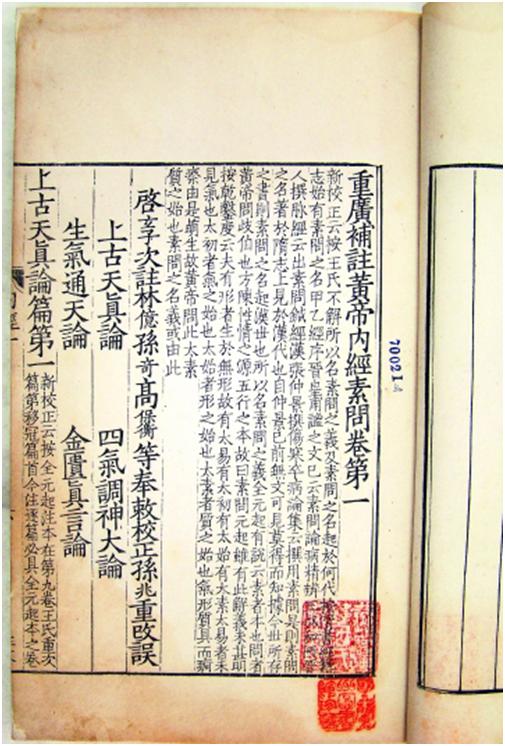 重廣補註黃帝內經素問卷第一
新校正云按王氏不解所以名素問之義及素問之名起於何代
志始有素問之名甲乙經序晉皇甫謐之文已云素問論病精辨
人撰脉經云出素問鍼經漢張仲景撰傷寒卒病論集云撰用素問是則素問
之名著於隋志上見於漢代也自仲景已前無文可見莫得而知據今世所存
之書則素問之名起漢世也所以名素問之義全元起有說云素者本也問者
黃帝問歧伯也方陳性情之源五行之本故曰素問元起雖有此解義未甚明
按乾鑿度云夫有形者生於無形故有太易有太初有太始有太素太易者未
見氣也太初者氣之始也太始者形之始也太素者質之始也氣形質具而痾
瘵由是萌生故黃帝問此太素
質之始也素問之名義或由此
啓玄子次註林億孫奇高保衡等奉敕校正孫兆重改誤
上古天真論 四氣調神大論
生氣通天論 金匱真言論
上古天真論篇第一
新校正云按全元起注本在第九卷王氏重次
篇第移冠篇首今注逐篇必具全元起本之卷
700214